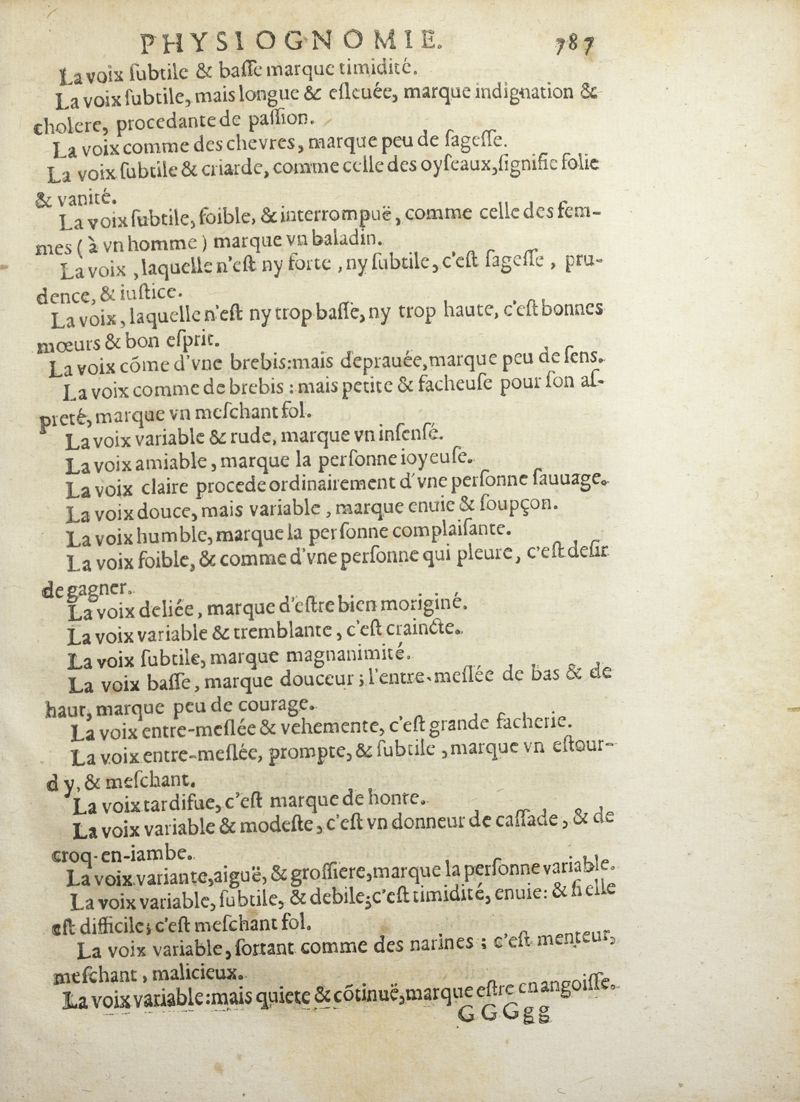 PHYSIOGNOMIE. 787
La voix ſubtile & baſſe marque timidité.
La voix ſubtile, mais longue & eſleuée, marque indignation &
cholere, procedante de paſſion.
La voix comme des chevres, marque peu de ſageſſe.
La voix ſubtile & criarde, comme celle des oyſeaux, ſignifie folie
& vanité.
La voix ſubtile, foible, & interrompuë, comme celle des fem-
mes ( à vn homme ) marque vn baladin.
La voix , laquelle n'eſt ny forte , ny ſubtile, c'eſt ſageſſe , pru-
dence, & iuſtice.
La voix, laquelle n'eſt ny trop baſſe, ny trop haute, c'eſt bonnes
mœurs & bon eſprit.
La voix cõme d'vne brebis: mais deprauée, marque peu de ſens.
La voix comme de brebis : mais petite & facheuſe pour ſon aſ-
preté, marque vn meſchant fol.
La voix variable & rude, marque vn inſenſé.
La voix amiable, marque la perſonne ioyeuſe.
La voix claire procede ordinairement d'vne perſonne ſauuage.
La voix douce, mais variable , marque enuie & ſoupçon.
La voix humble, marque la perſonne complaiſante.
La voix foible, & comme d'vne perſonne qui pleure, c'eſt deſir
de gagner.
La voix deliée, marque d'eſtre bien moriginé.
La voix variable & tremblante, c'eſt crainɛte.
La voix ſubtile, marque magnanimité.
La voix baſſe, marque douceur ; l'entre-meſlée de bas & de
haut, marque peu de courage.
La voix entre-meſlée & vehemente, c'eſt grande facherie.
La voix entre-meſlée, prompte, & ſubtile , marque vn eſtour-
dy, & meſchant.
La voix tardifue, c'eſt marque de honte.
La voix variable & modeſte, c'eſt vn donneur de caſſade, & de
croq-en-iambe.
La voix variante, aiguë, & groſſiere, marque la perſonne variable.
La voix variable, ſubtile, & debile; c'eſt timidité, enuie: & ſi elle
eſt difficile; c'eſt meſchant fol.
La voix variable, ſortant comme des narines ; c'eſt menteur,
meſchant, malicieux.
La voix variable: mais quiete & cõtinuë, marque eſtre en angoiſſe.
GGGgg